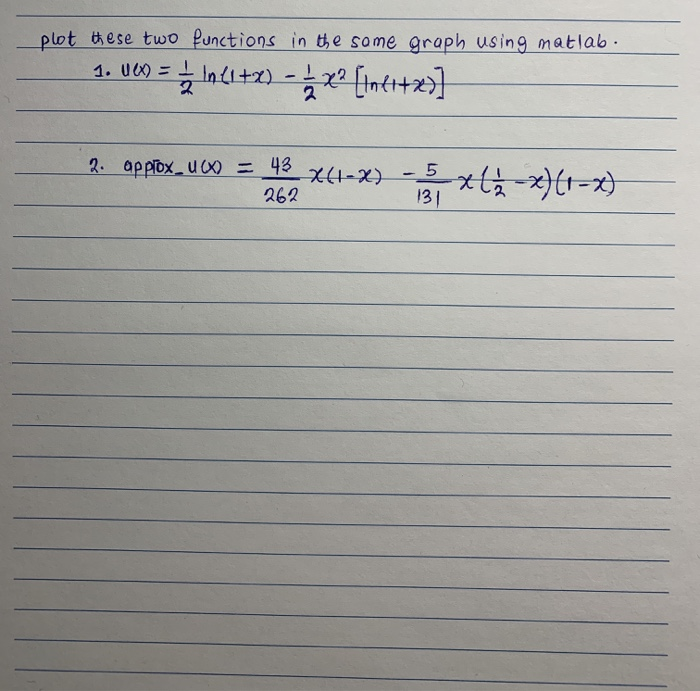 plot these two functions in the same graph using matlab.
1. U(x) = 1/2 ln(1+x) - 1/2 x² [ln(1+x)]
2. approx_u(x) = 43/262 x(1-x) - 5/131 x(1/2 -x)(1-x)